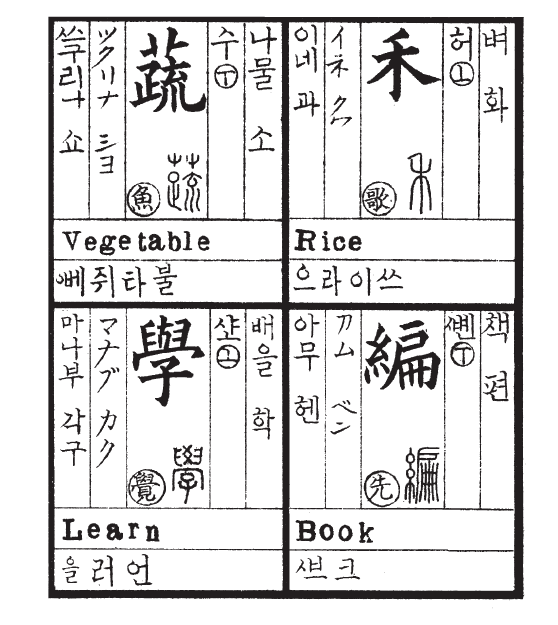 벼 화
허 丄
禾
歌 禾
イネ クワ
이네 과
Rice
으라이쓰
나물 소
수 丅
蔬
魚 蔬
ツクリナ シヨ
쓰구리나 쇼
Vegetable
쥐타불
책 편
丅
編
先 編
ム ベン
아무 헨
Book
크
배울 학
學
覺 學
マナブ カク
마나부 각구
Learn
을러언